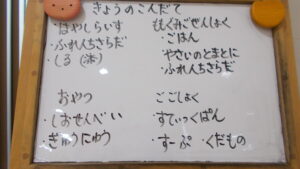 きょうのこんだて
・はやしらいす
・ふれんちさらだ
・しる
もぐもぐごぜんしょく
・ごはん
やさいのとまとに
・ふれんちさらだ
おやつ
・しおせんべい
・ぎゅうにゅう
ごごしょく
・すてぃっくぱん
・すーぷ ・くだもの